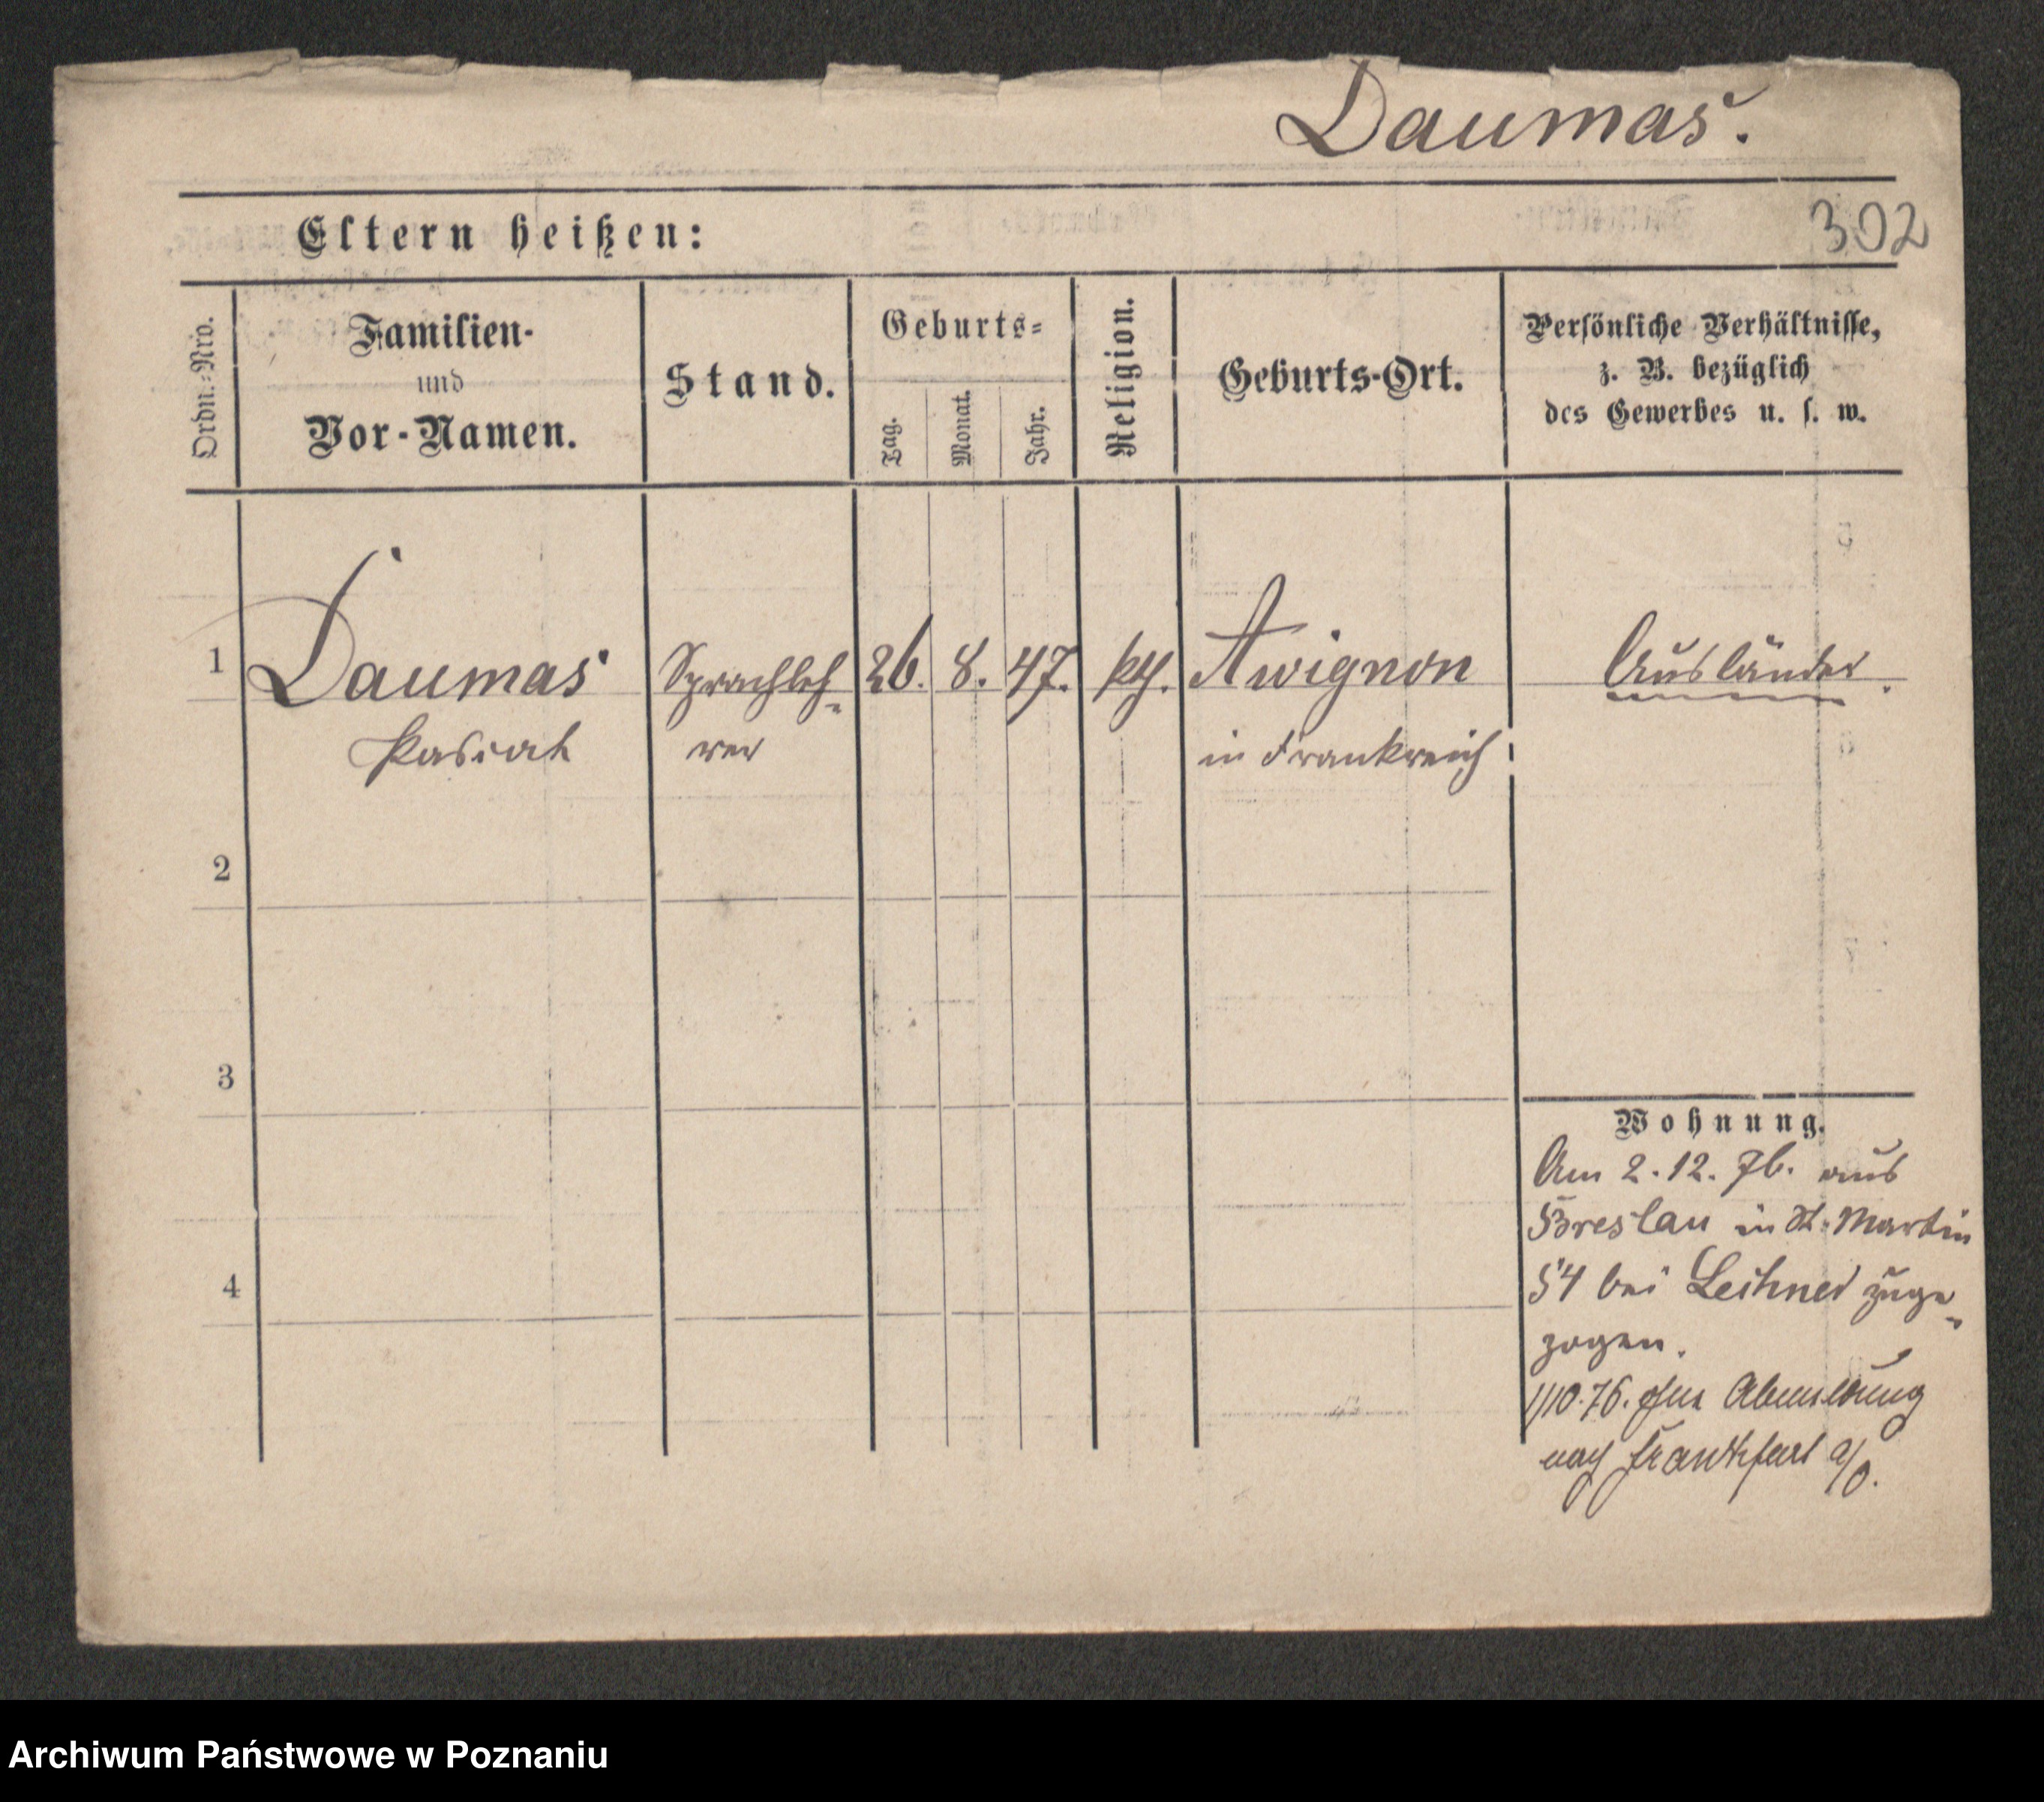 Daumas.
302
Eltern heißen:
Ordn.-Nro.
Familien-
und
Vor-Namen.
Stand.
Geburts-
Tag.
Monat.
Jahr.
Religion.
Geburts-Ort.
Persönliche Verhältnisse,
z. B. bezüglich
des Gewerbes u. s. w.
1 Daumas Sprachleh- 26. 8. 47. kth. Awignon Ausländer.
rer in Frankreich
2
3
4
Wohnung.
Am 2.12.76. aus
Breslau in St. Martin
54 bei Leihner zuge-
zogen.
1/10.76. ohne Abmeldung
nach Frankfurt a/O.
Archiwum Państwowe w Poznaniu